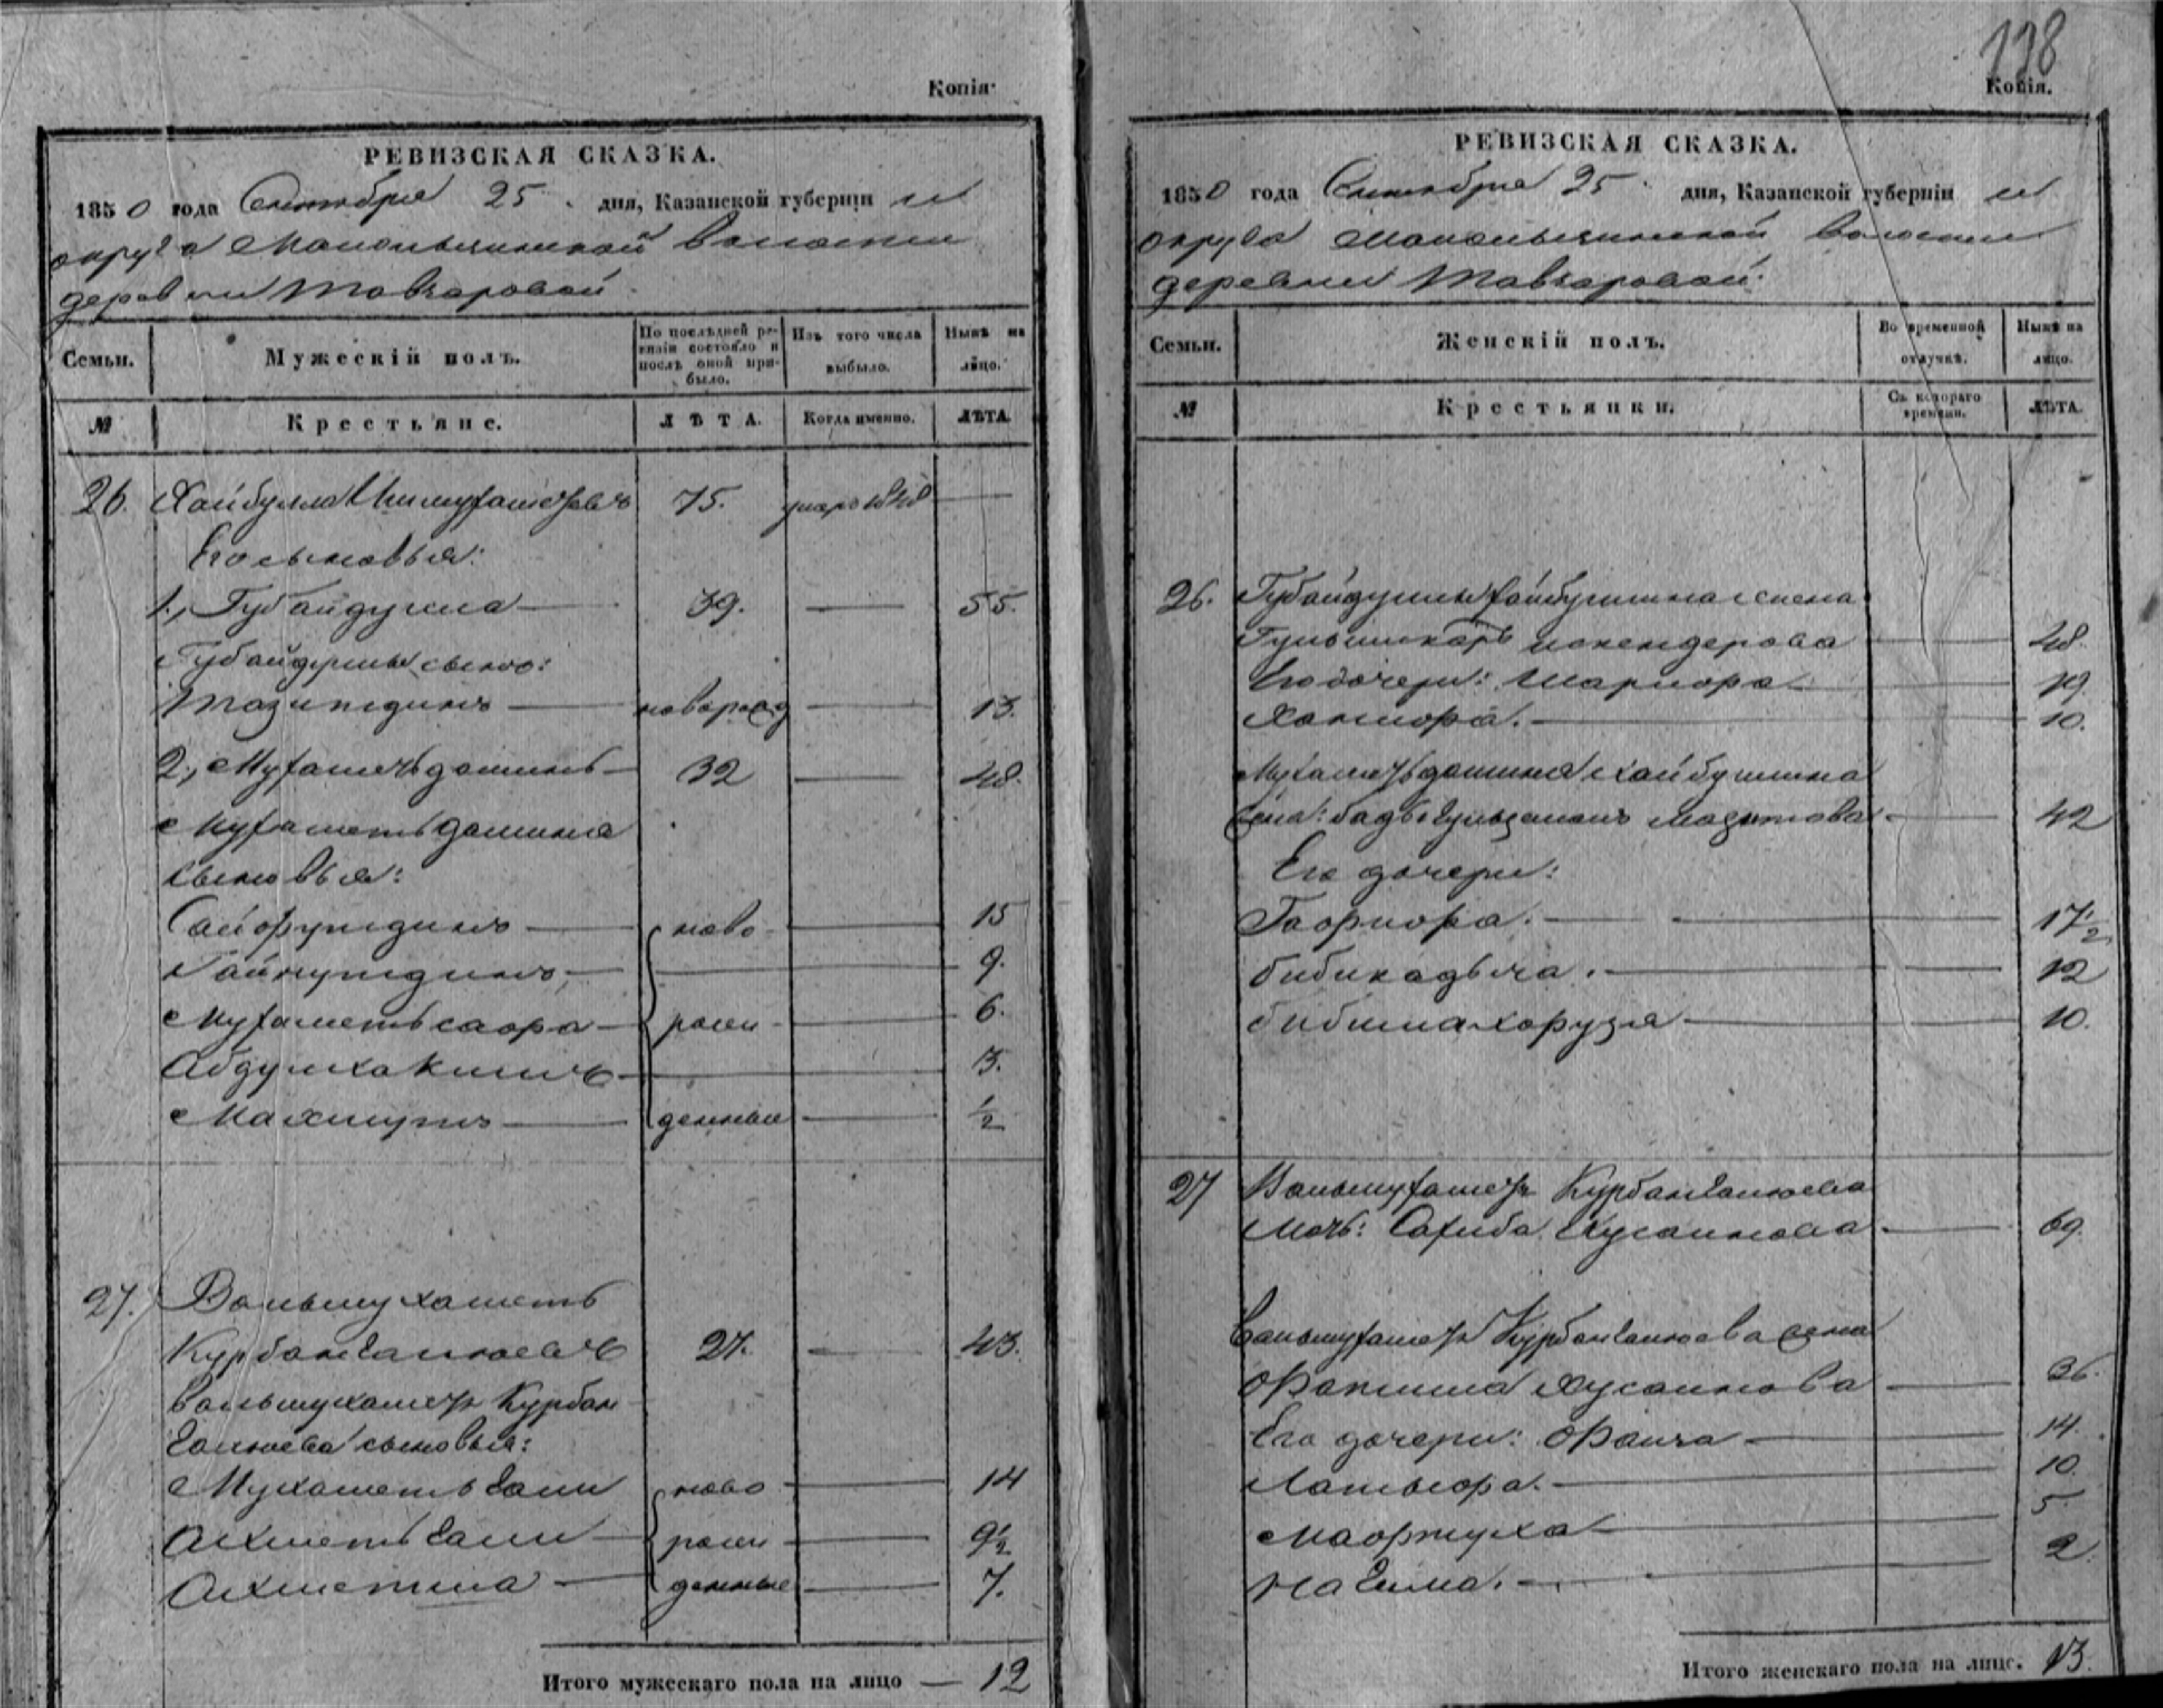 Копія.
РЕВИЗСКАЯ СКАЗКА.
1850 года Сентября 25 дня, Казанской губерніи и
округа волости
деревни Тавларовой
Семьи. Мужескій полъ. По послѣдней ревизіи состояло и послѣ оной прибыло. Изъ того числа выбыло. Нынѣ на лицо.
№ Крестьяне. ЛѢТА. Когда именно. ЛѢТА.
26. Хайбулла 75. —
Его сыновья:
1., Губайдулла — 39. — 55.
Губайдуллы сынъ:
Тазитдинъ — новорожд — 13.
2., Мухаметьдаминъ — 32 — 48.
Мухаметьдамина
сыновья:
Сайфутдинъ — ново — 15
Гайнутдинъ — — 9.
Мухаметьсафа — рож — 6.
Абдулхакимъ — — 3.
Махмутъ — денные — 1/2
27. Вальмухаметь
Курбангалеевъ 27. — 43.
Вальмухаметя Курбан
галеева сыновья:
Мухаметьгали ново — 14
Ахметьгали — рож — 9 1/2
Ахметша — денные — 7.
Итого мужескаго пола на лицо — 12
198
Копія.
РЕВИЗСКАЯ СКАЗКА.
1850 года Сентября 25 дня, Казанской губерніи и
округа волости
деревни Тавларовой
Семьи. Женскій полъ. Во временной отлучкѣ. Нынѣ на лицо.
№ Крестьянки. Съ котораго времени. ЛѢТА.
26. Губайдуллы Хайбуллина жена
искендерова — 48.
Его дочери: Шарифа — 19.
Ханифа. — 10.
Мухаметьдамина Хайбуллина
жена: — 42
Его дочери:
Гафифа. — 17 1/2
бибикадыча. — 12
— 10.
27 Вальмухаметя Курбангалеева
Мать: Сахиба Хусаинова — 69.
Вальмухаметя Курбангалеева жена
Фатима Хусаинова — 36.
Его дочери: Фаиза — 14.
Латыфа. — 10.
Мафтуха — 5.
Нагима. — 2.
Итого женскаго пола на лице. 13.